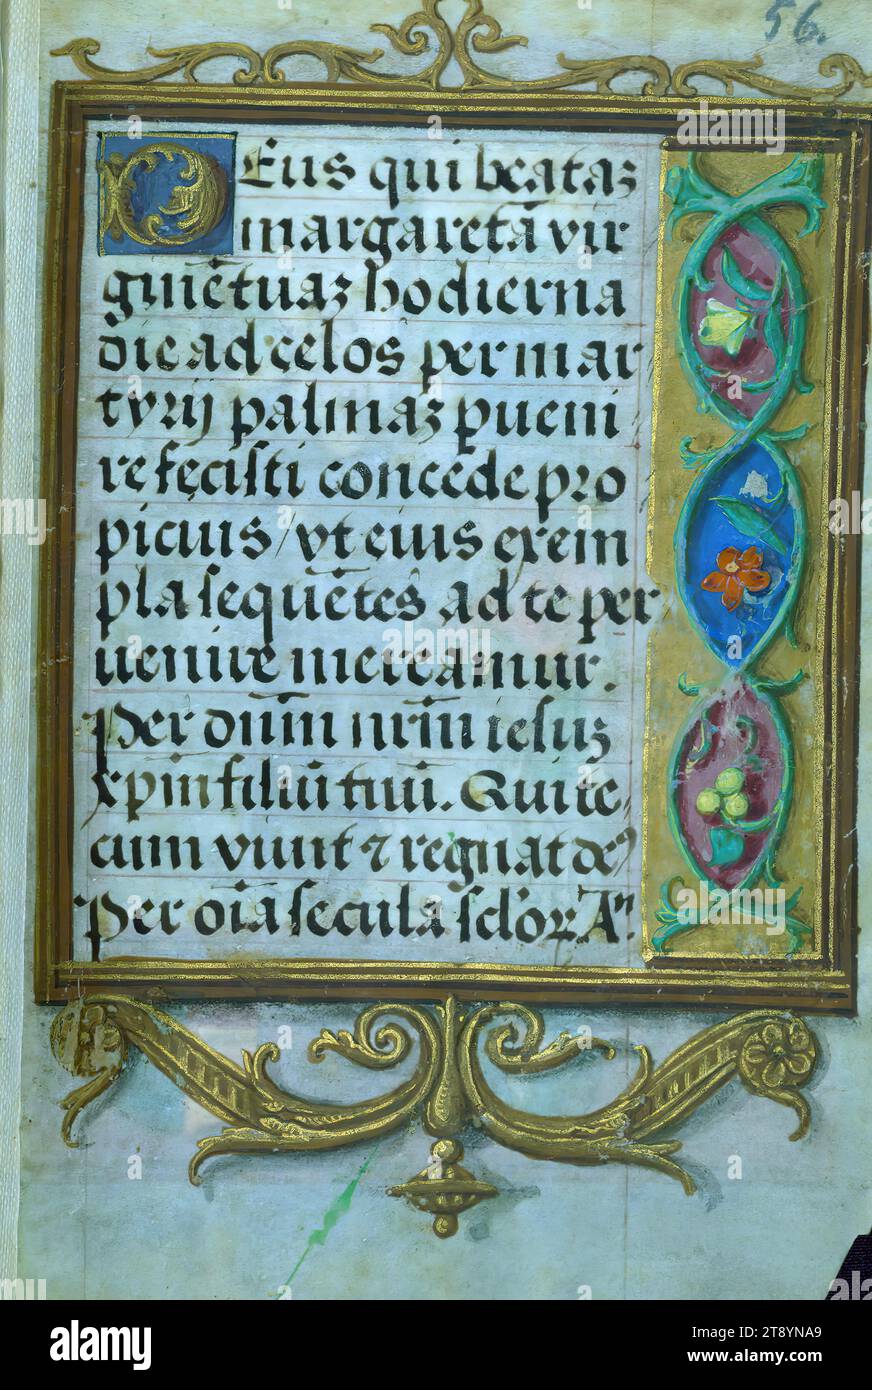 56.
DEus qui beataз
margaretā vir
ginē tuaз hodierna
die ad celos per mar
tyrij palmaз pueni
re fecisti concede pro
picius / vt eius exem
pla sequētes ad te per
uenire mereamur.
Per dn̄m nr̄m iesuз
xp̄m filiū tuū. Qui te
cum viuit ⁊ regnat de⁹
Per oīa secula sclōꝝ Am̄.
alamy
Image ID: 2T8YNA9
www.alamy.com